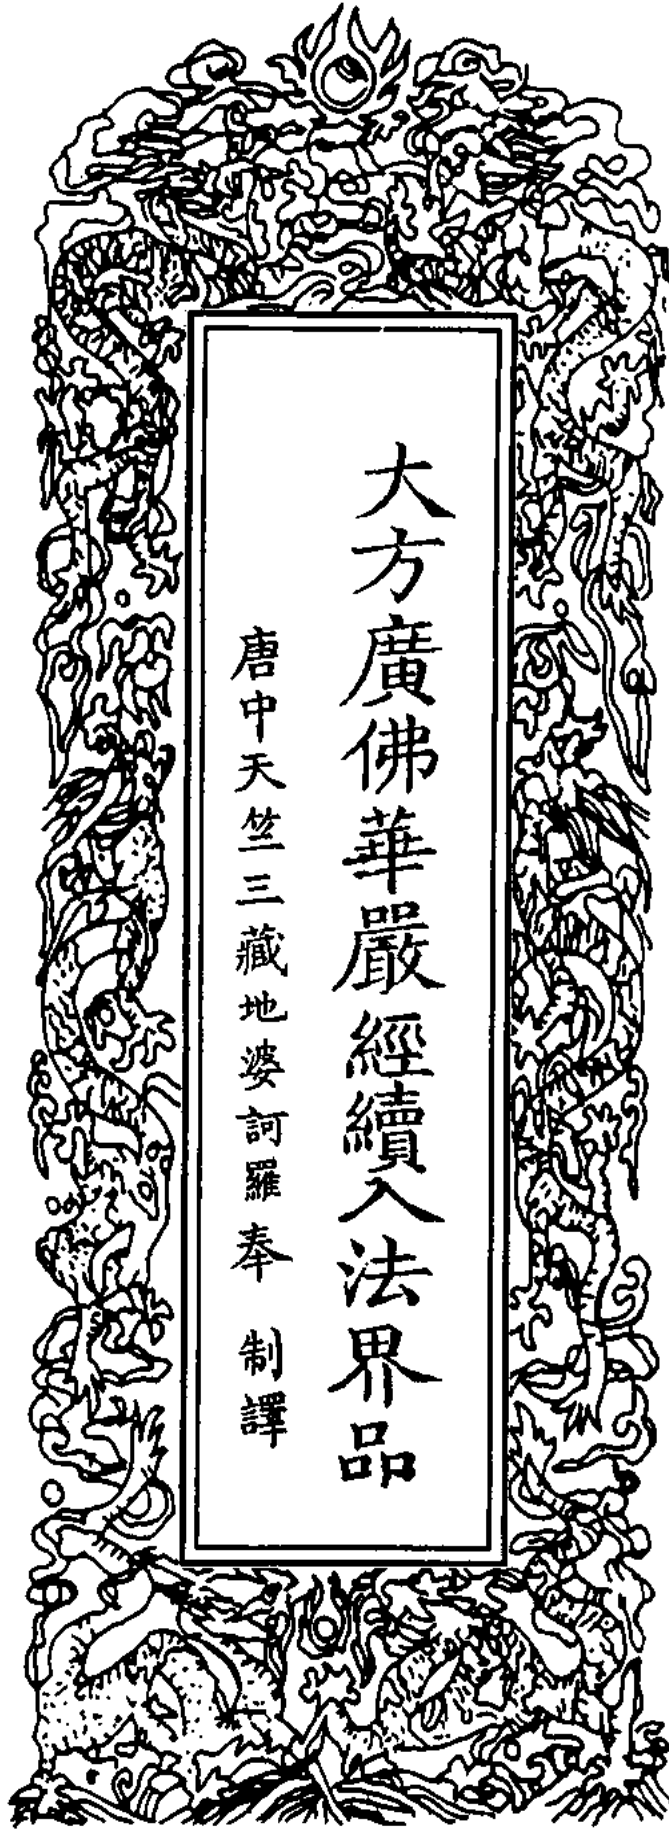 大方廣佛華嚴經續入法界品
唐中天竺三藏地婆訶羅奉 制譯